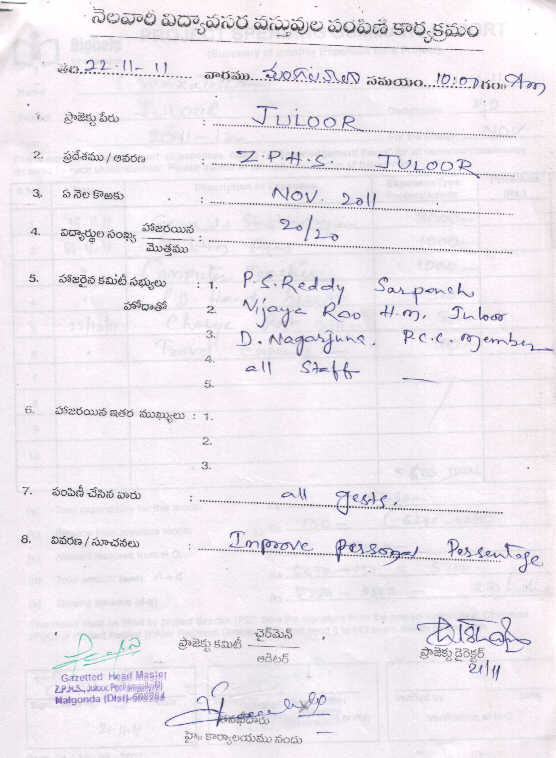 నెలవారీ విద్యావసర వస్తువుల పంపిణీ కార్యక్రమం
తేది 22-11-11 వారము మంగళవారం సమయం 10:00 గం॥ Am
1. ప్రాజెక్టు పేరు : JULOOR
2. ప్రదేశము / ఆవరణ : Z.P.H.S. JULOOR
3. ఏ నెల కొఱకు : NOV. 2011
4. విద్యార్థుల సంఖ్య హాజరయిన / మొత్తము : 20/20
5. హాజరైన కమిటీ సభ్యులు : 1. P.S. Reddy Sarpanch
హోదాతో 2. Vijaya Rao H.M. Juloor
3. D. Nagarjuna. P.C.C. member
4. all Staff —
5.
6. హాజరయిన ఇతర ముఖ్యులు : 1.
2.
3.
7. పంపిణీ చేసిన వారు : all gests.
8. వివరణ / సూచనలు : Improve personal Persentage
ప్రాజెక్టు కమిటీ చైర్‌మెన్ / ఆడిటర్
ప్రాజెక్టు డైరెక్టర్
21/11
Gazetted Head Master
Z.P.H.S., Juloor, Pochampally(M)
Nalgonda (Dist)
హైః కార్యాలయము నందు